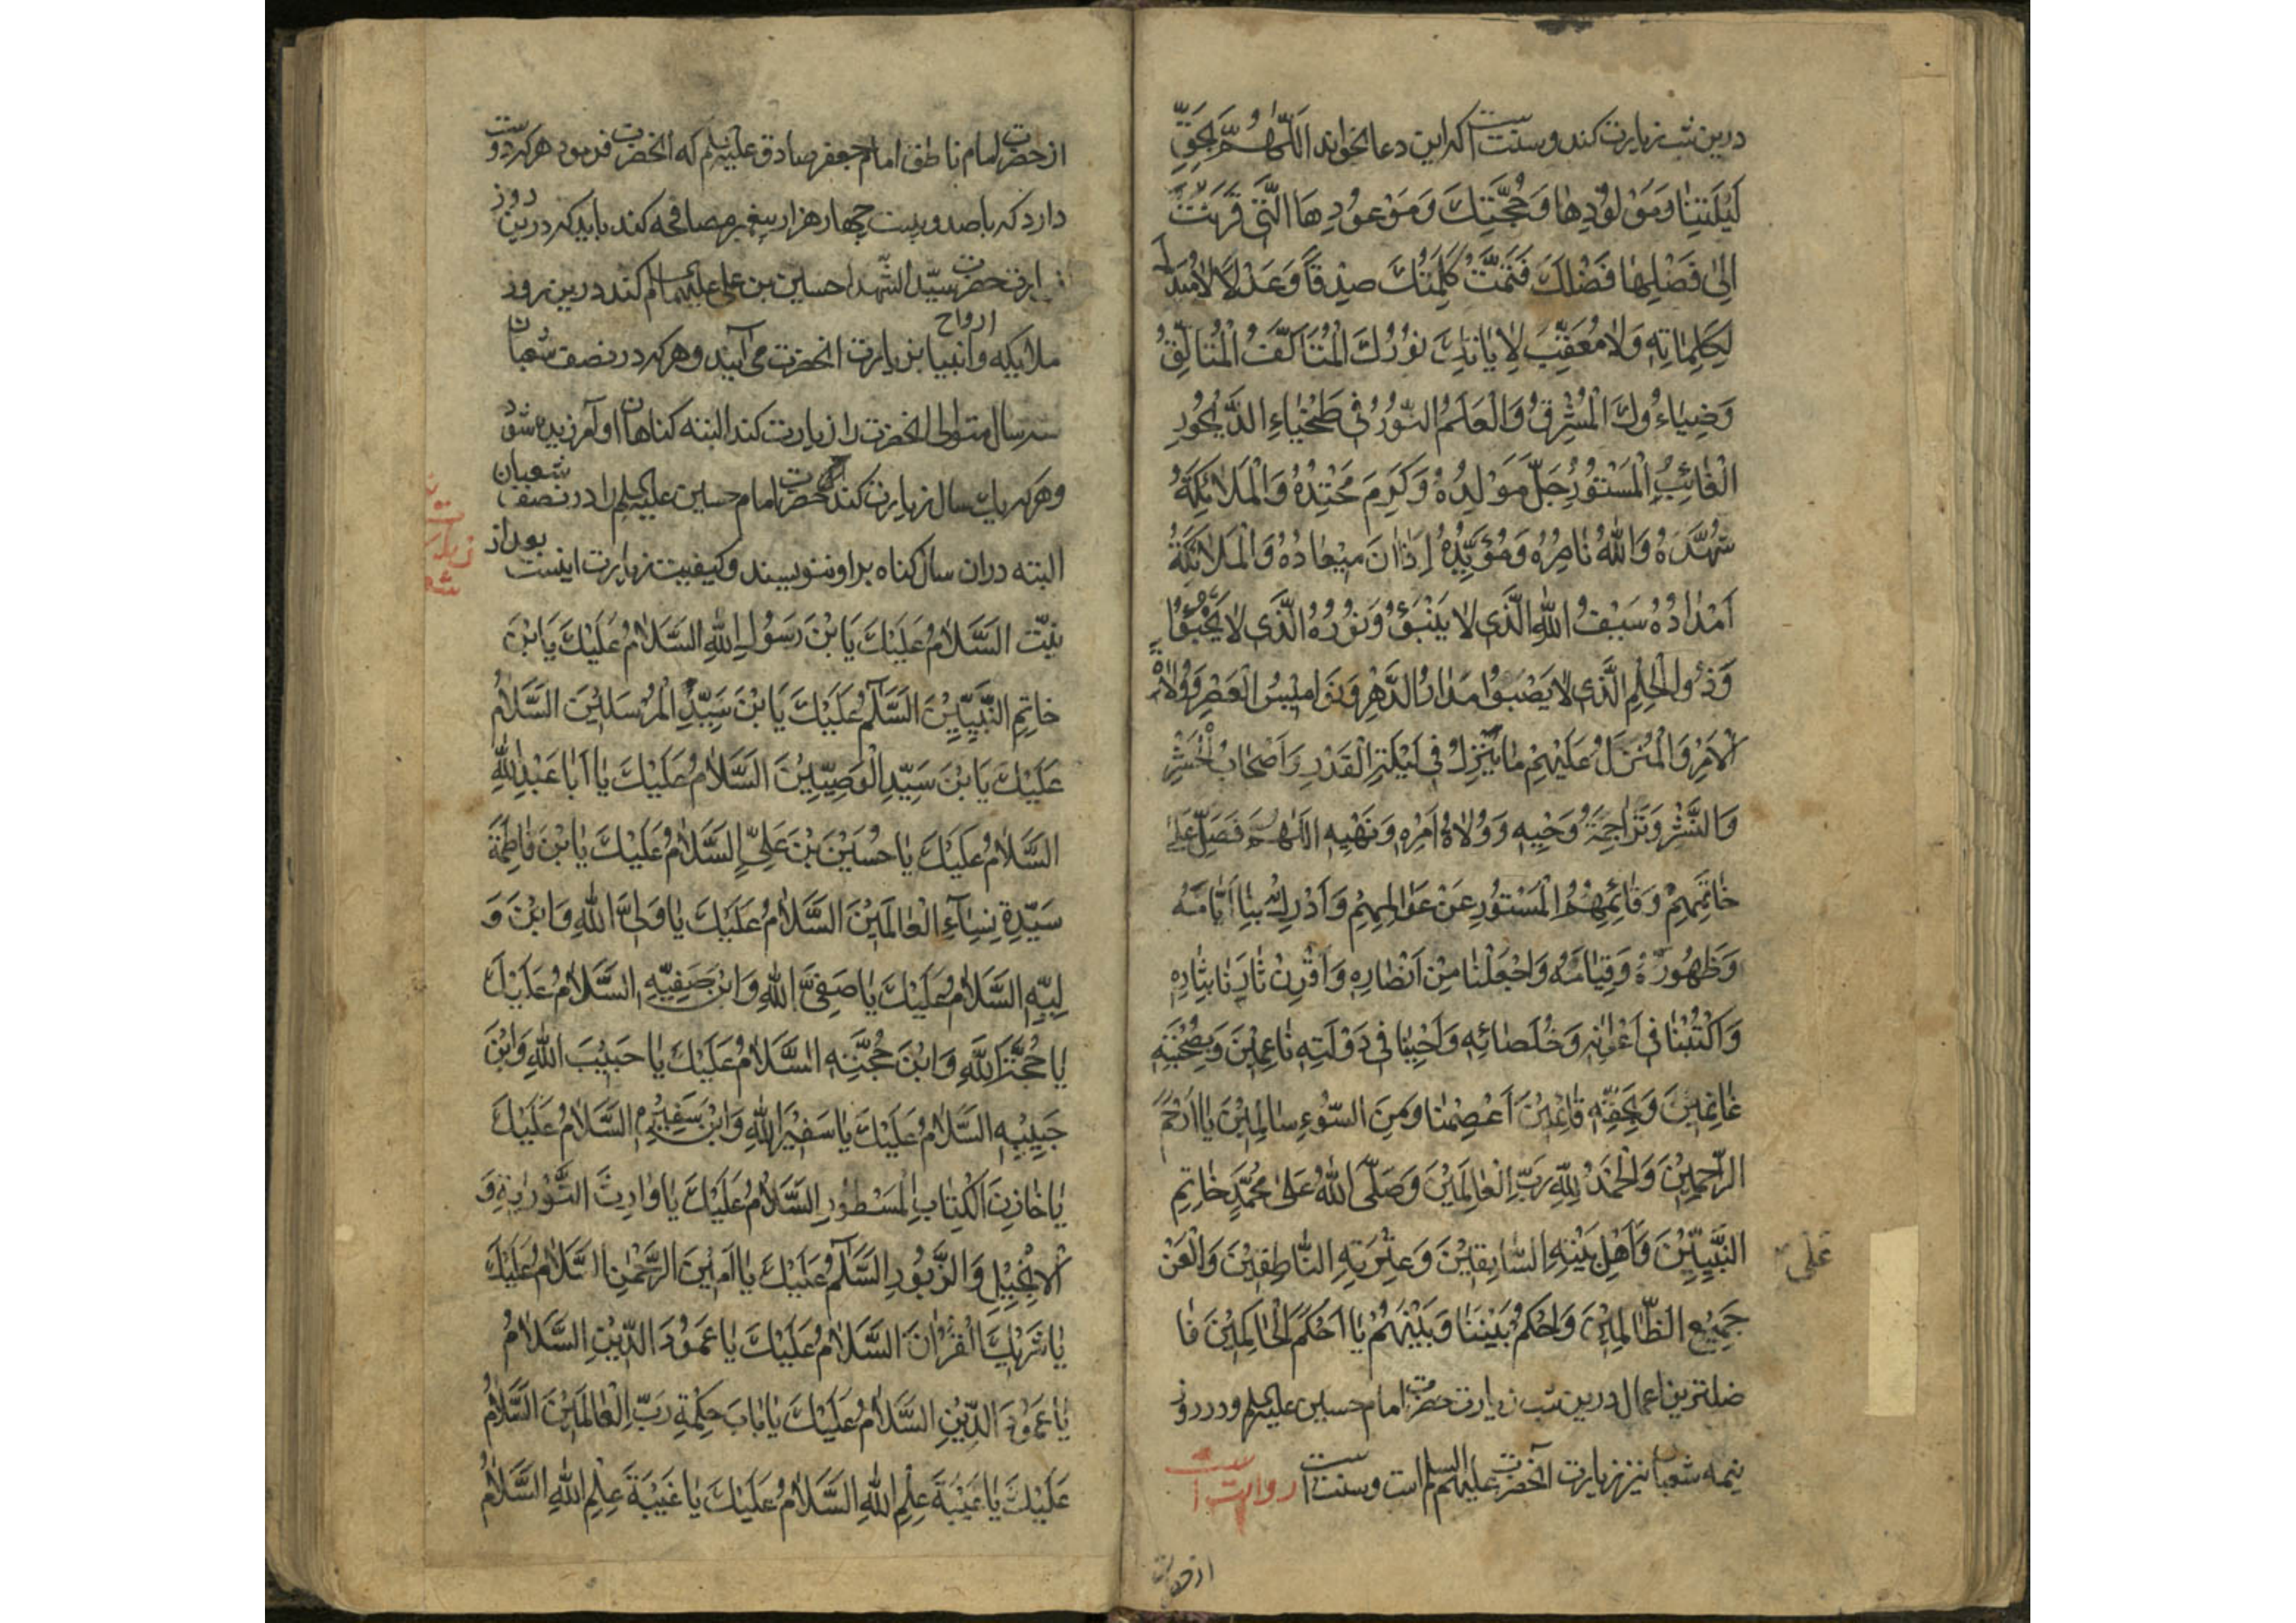 درین شب زیارت کند و سنت است که این دعا بخواند اَللّٰهُمَّ بِحَقِّ
لَیْلَتِنٰا وَمَوْلُوْدِهٰا وَحُجَّتِكَ وَمَوْعُوْدِهَا الَّتِیْ قَرَنْتَ
اِلٰی فَضْلِهٰا فَضْلَكَ فَتَمَّتْ كَلِمَتُكَ صِدْقًا وَعَدْلًا لٰا مُبَدِّلَ
لِكَلِمٰاتِهٖ وَلٰا مُعَقِّبَ لِاٰیٰاتِكَ نُوْرُكَ الْمُتَاَلِّقُ
وَضِیٰاءُكَ الْمُشْرِقُ وَالْعَلَمُ النُّوْرُ فِی طَخْیٰاءِ الدَّیْجُوْرِ
الْغٰائِبُ الْمَسْتُوْرُ جَلَّ مَوْلِدُهُ وَكَرُمَ مَحْتِدُهُ وَالْمَلٰائِكَةُ
شُهَّدُهُ وَاللّٰهُ نٰاصِرُهُ وَمُؤَیِّدُهُ اِذٰا اٰنَ مِیْعٰادُهُ وَالْمَلٰائِكَةُ
اَمْدٰادُهُ سَیْفُ اللّٰهِ الَّذِی لٰا یَنْبُوْ وَنُوْرُهُ الَّذِی لٰا یَخْبُوْ
وَذُو الْحِلْمِ الَّذِی لٰا یَصْبُوْا مَدٰارُ الدَّهْرِ وَنَوٰامِیْسُ الْعَصْرِ وَوُلٰاةُ
الْاَمْرِ وَالْمُنَزَّلُ عَلَیْهِمْ مٰا یَتَنَزَّلُ فِی لَیْلَةِ الْقَدْرِ وَاَصْحٰابُ الْحَشْرِ
وَالنَّشْرِ وَتَرٰاجِمَةُ وَحْیِهٖ وَوُلٰاةُ اَمْرِهٖ وَنَهْیِهٖ اللّٰهُمَّ فَصَلِّ عَلٰی
خٰاتَمِهِمْ وَقٰائِمِهِمُ الْمَسْتُوْرِ عَنْ عَوٰالِمِهِمْ وَاَدْرِكْ بِنٰا اَیّٰامَهُ
وَظُهُوْرَهُ وَقِیٰامَهُ وَاجْعَلْنٰا مِنْ اَنْصٰارِهٖ وَاَقْرِنْ ثٰارَنٰا بِثٰارِهٖ
وَاكْتُبْنٰا فِی اَعْوٰانِهٖ وَخُلَصٰائِهٖ وَاَحْیِنٰا فِی دَوْلَتِهٖ نٰاعِمِیْنَ وَبِصُحْبَتِهٖ
غٰانِمِیْنَ وَبِحَقِّهٖ قٰائِمِیْنَ اَعْصِمْنٰا وَمِنَ السُّوْءِ سٰالِمِیْنَ یٰا اَرْحَمَ
الرّٰحِمِیْنَ وَالْحَمْدُ لِلّٰهِ رَبِّ الْعٰالَمِیْنَ وَصَلَّی اللّٰهُ عَلٰی مُحَمَّدٍ خٰاتِمِ
النَّبِیِّیْنَ وَاَهْلِ بَیْتِهِ السّٰابِقِیْنَ وَعِتْرَتِهِ النّٰاطِقِیْنَ وَالْعَنْ
عَلٰی
جَمِیْعِ الظّٰالِمِیْنَ وَاحْكُمْ بَیْنَنٰا وَبَیْنَهُمْ یٰا اَحْكَمَ الْحٰاكِمِیْنَ فا
ضلترین اعمال درین شب زیارت حضرت امام حسین علیه السلم و در روز
نیمه شعبان نیز زیارت آنحضرت علیه السلم است و سنت است روایت است
از حضرت
از حضرت امام ناطق امام جعفر صادق علیه السلم که انحضرت فرمود هر که دوست
دارد که با صد و بیست چهار هزار پیغمبر مصافحه کند باید که درین روز
زیارت حضرت سیّد الشهدا حسین بن علی علیهما السلم کند درین روز
ملایکه و ارواح انبیا بزیارت انحضرت می آیند و هر که در نصف شعبان
سه سال متوالی انحضرت را زیارت کند البته کناهان او آمرزیده شود
و هر که یك سال زیارت کند حضرت امام حسین علیه السلم را در نصف شعبان
البته در ان سال کناه بر او ننویسند و کیفیت زیارت اینست بعد از
نیّت السَّلٰامُ عَلَیْكَ یَا بْنَ رَسُوْلِ اللّٰهِ السَّلٰامُ عَلَیْكَ یَا بْنَ
خٰاتِمِ النَّبِیِّیْنَ السَّلٰمُ عَلَیْكَ یَا بْنَ سَیِّدِ الْمُرْسَلِیْنَ السَّلٰامُ
عَلَیْكَ یَا بْنَ سَیِّدِ الْوَصِیِّیْنَ السَّلٰامُ عَلَیْكَ یٰا اَبٰا عَبْدِ اللّٰهِ
السَّلٰامُ عَلَیْكَ یٰا حُسَیْنَ بْنَ عَلِیٍّ السَّلٰامُ عَلَیْكَ یٰا بْنَ فٰاطِمَةَ
سَیِّدَةِ نِسٰآءِ الْعٰالَمِیْنَ السَّلٰامُ عَلَیْكَ یٰا وَلِیَّ اللّٰهِ وَابْنَ وَ
لِیِّهٖ السَّلٰامُ عَلَیْكَ یٰا صَفِیَّ اللّٰهِ وَابْنَ صَفِیِّهٖ السَّلٰامُ عَلَیْكَ
یٰا حُجَّةَ اللّٰهِ وَابْنَ حُجَّتِهٖ السَّلٰامُ عَلَیْكَ یٰا حَبِیْبَ اللّٰهِ وَابْنَ
حَبِیْبِهٖ السَّلٰامُ عَلَیْكَ یٰا سَفِیْرَ اللّٰهِ وَابْنَ سَفِیْرِهٖ السَّلٰامُ عَلَیْكَ
یٰا خٰازِنَ الْكِتٰابِ الْمَسْطُوْرِ السَّلٰامُ عَلَیْكَ یٰا وٰارِثَ التَّوْرٰیةِ وَ
الْاِنْجِیْلِ وَالزَّبُوْرِ السَّلٰمُ عَلَیْكَ یٰا اَمِیْنَ الرَّحْمٰنِ السَّلٰامُ عَلَیْكَ
یٰا شَرِیْكَ الْقُرْاٰنَ السَّلٰامُ عَلَیْكَ یٰا عَمُوْدَ الدِّیْنِ السَّلٰامُ
یٰا عَمُوْدَ الدِّیْنِ السَّلٰامُ عَلَیْكَ یٰا بٰابَ حِكْمَةِ رَبِّ الْعٰالَمِیْنَ السَّلٰامُ
عَلَیْكَ یٰا عَیْبَةَ عِلْمِ اللّٰهِ السَّلٰامُ عَلَیْكَ یٰا عَیْبَةَ عِلْمِ اللّٰهِ السَّلٰامُ